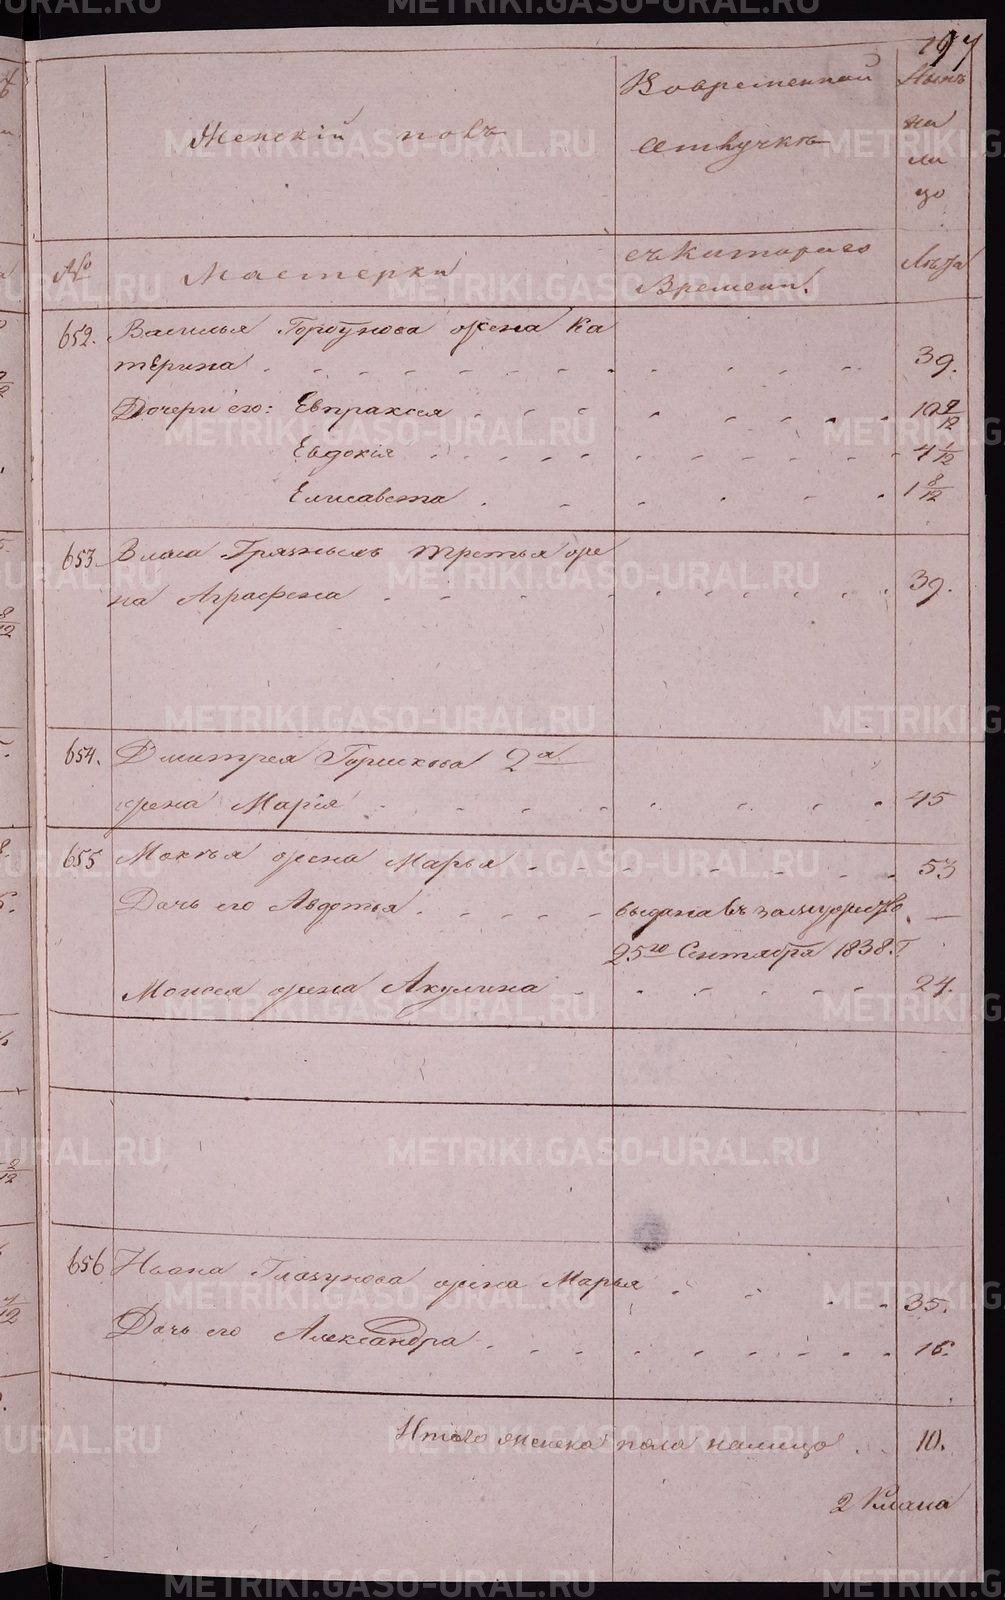 197
Женскій полъ
Во временной
отлучкѣ
Нынѣ
на
ли
цо
№
Мастерки
съ котораго
Времени.
Лѣта
652. Василья Горбунова жена Ка
терина 39.
Дочери его: Евпраксея 10 9/12
Евдокія 4 1/12
Елисавета 1 8/12
653. Власа Грязныхъ третья же
на Аграфена 39.
654. Дмитрея Горшкова 2я
жена Марія 45
655 Мокѣя жена Марья 53
Дочь его Авдотья выдана въ замужество —
25го Сентября 1838. Г
Моисея жена Акулина 24.
656 Ивана Глазунова жена Марья 35.
Дочь его Александра 16.
Итого женска пола налицо 10.
METRIKI.GASO-URAL.RU